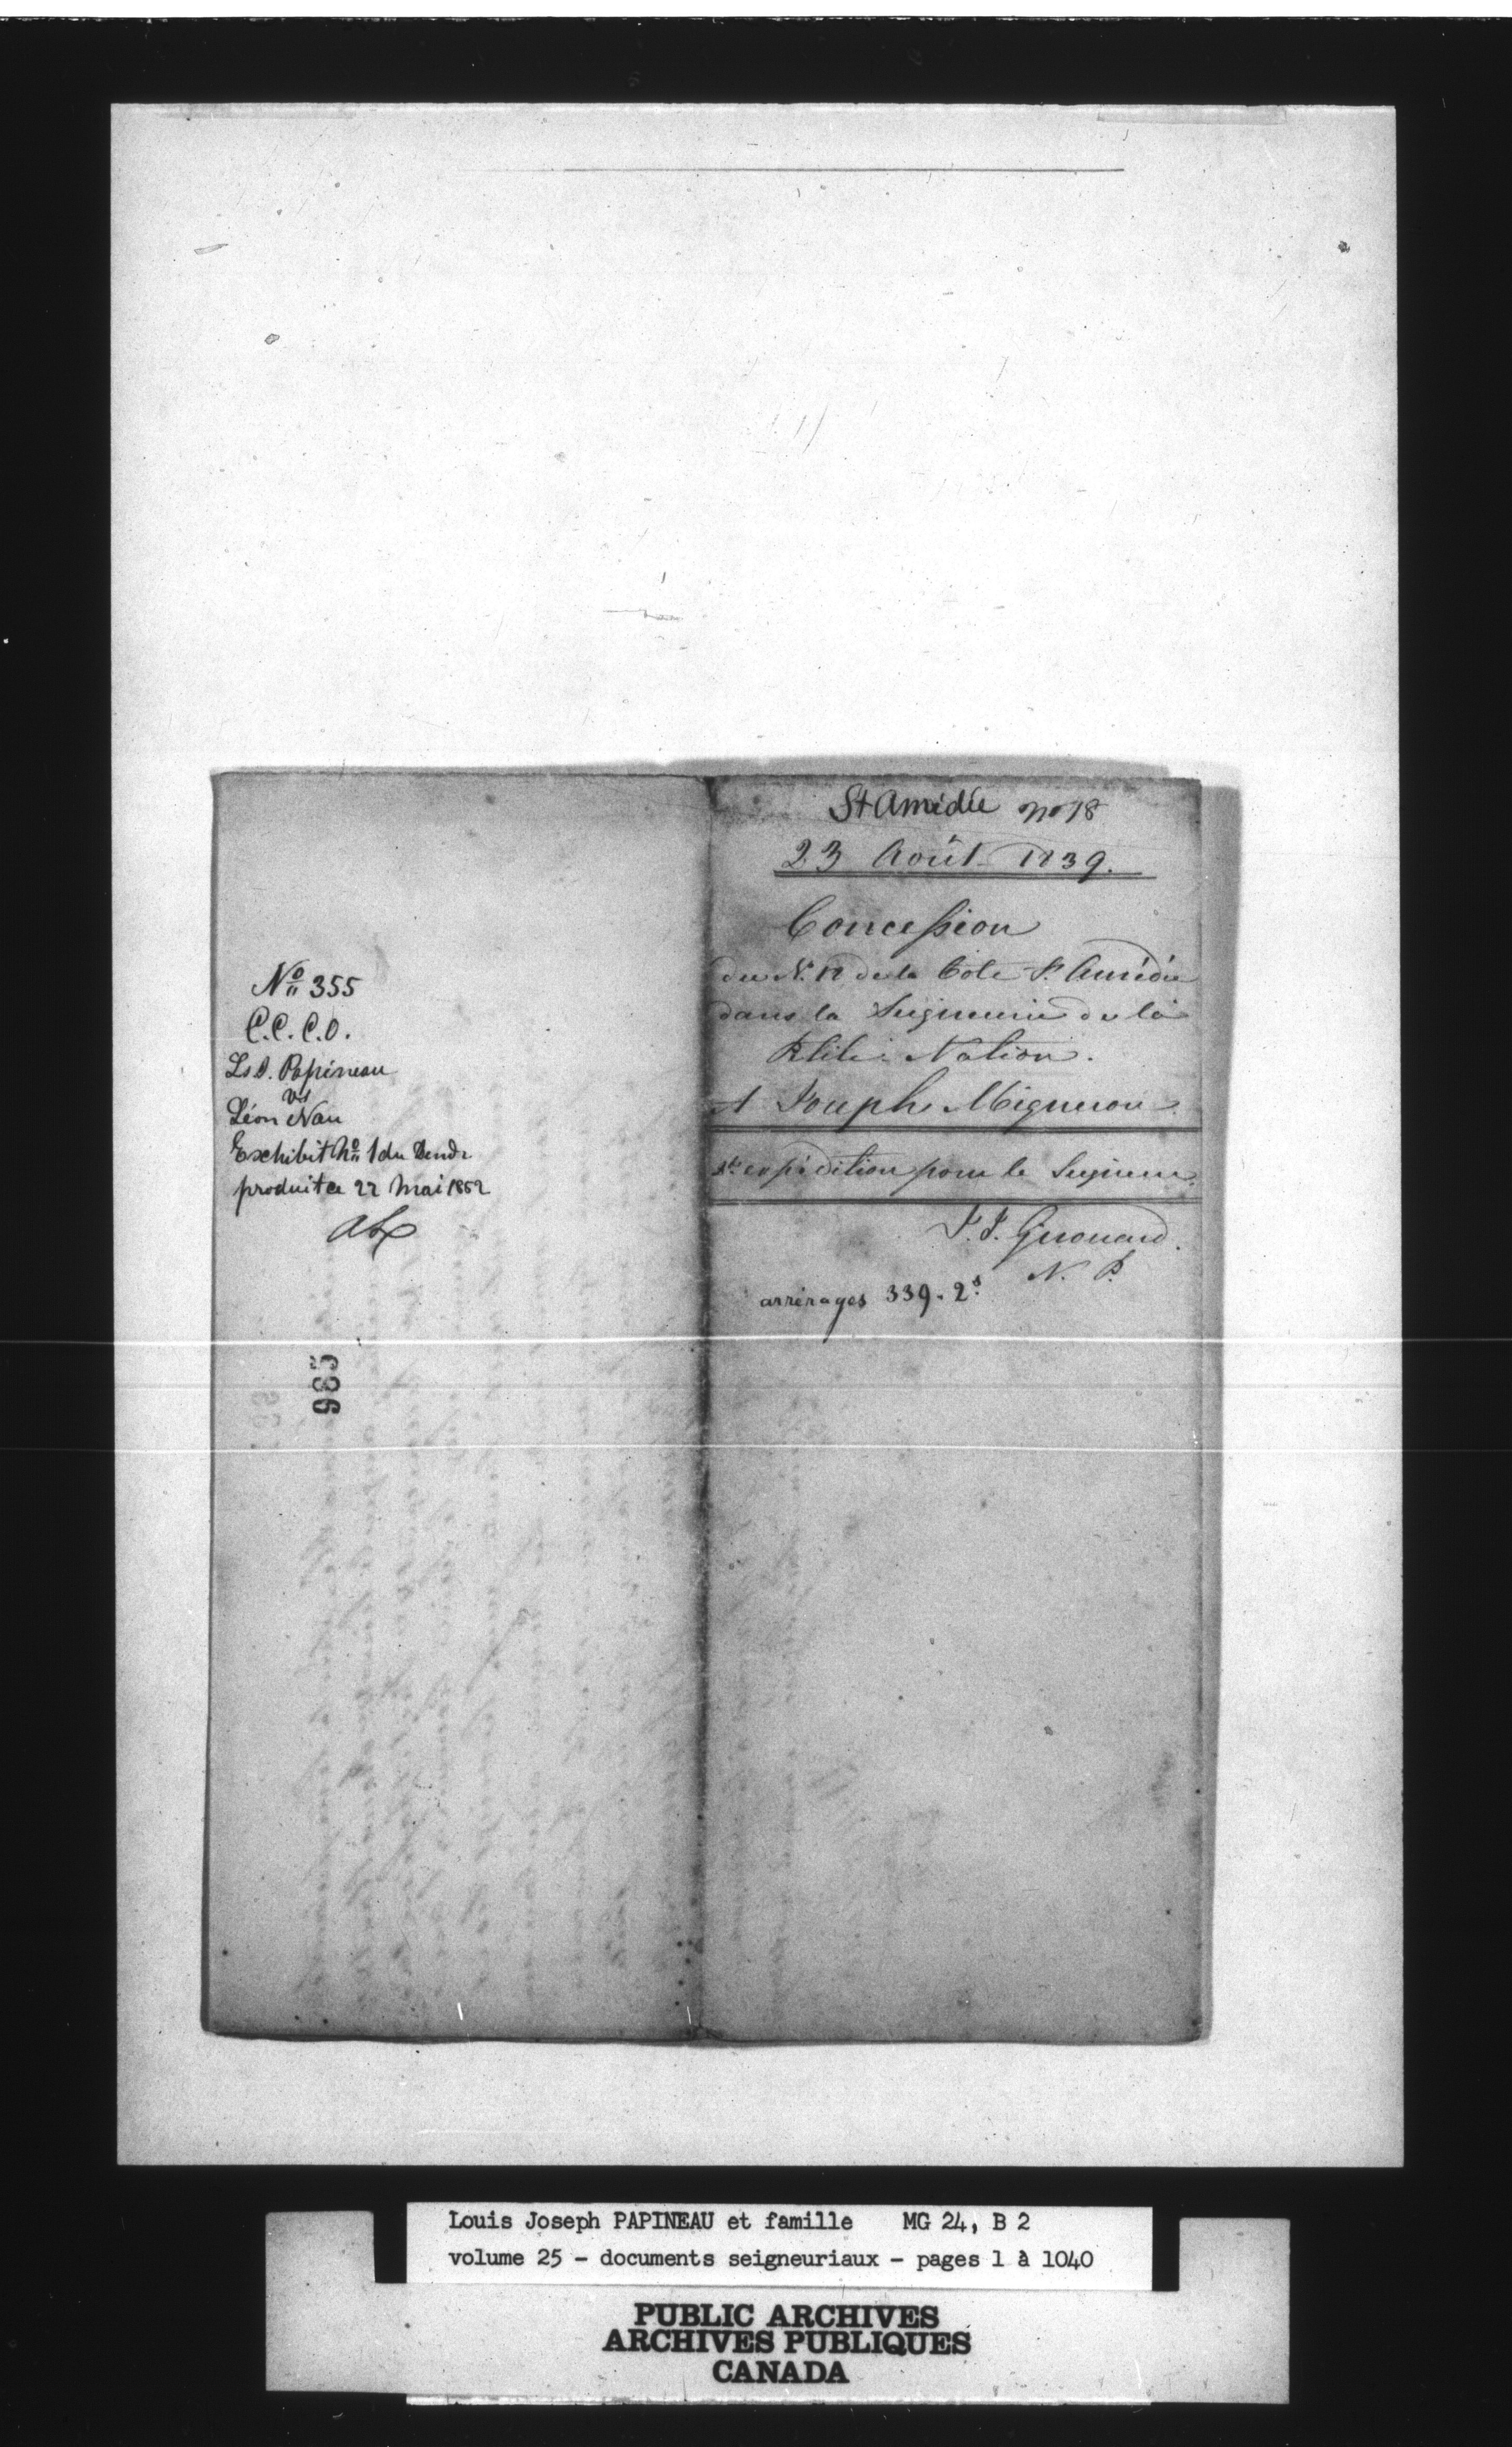 No 355
C.C.C.O.
Ls J. Papineau
vs
Léon Nau
Exhibit No 1 du Dendr
produit ce 22 Mai 1852
985
St Amédée no 18
23 Août 1839.
Concession
du N. 18 de la Cote St. Amédée
dans la Seigneurie de la
Petite Nation.
A Joseph Migneron
1re expédition pour le Seigneur.
J. J. Girouard.
N. P.
arrérages 339. 2s.
Louis Joseph PAPINEAU et famille MG 24, B 2
volume 25 - documents seigneuriaux - pages 1 à 1040
PUBLIC ARCHIVES
ARCHIVES PUBLIQUES
CANADA